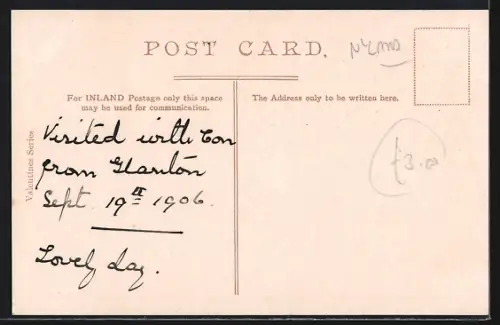 POST CARD.
For INLAND Postage only this space
may be used for communication.
The Address only to be written here.
Valentines Series
Visited with Con
from Glanton
Sept 19th 1906.
Lovely day.
£3.00